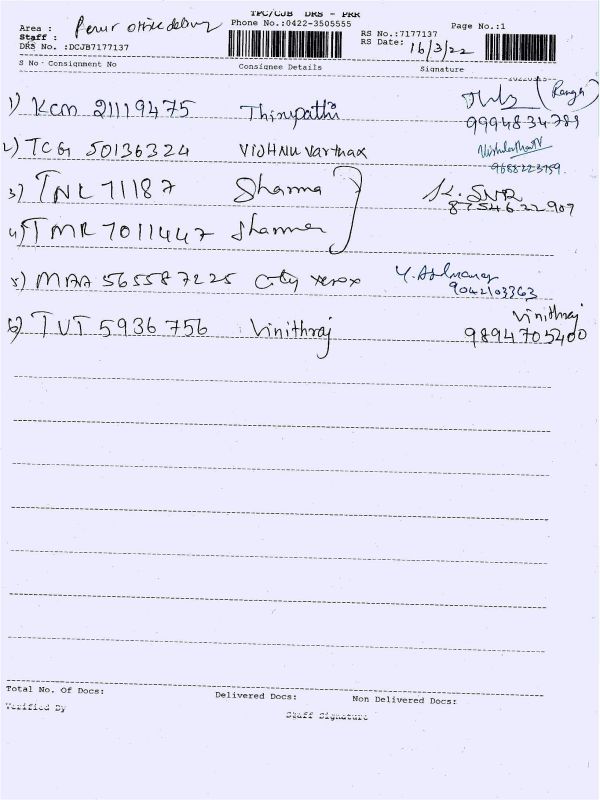 TPC/CJB DRS - PRR
Area : Perur office delivery Phone No.:0422-3505555 Page No.:1
Staff : RS No.:7177137
DRS No. :DCJB7177137 RS Date: 16/3/22
S No - Consignment No Consignee Details Signature
1) KCM 21119475 Thirupathi (Ranga)
9994834789
2) TCG 50136324 VISHNU Varthan
9688223759
3) TNL 71187 Sharma SK. SNR
8754622907
4) TMR 7011447 Sharma
5) MAA 565587225 City xerox
9042103363
6) TVT 5936756 Vinithraj Vinithraj
9894705400
Total No. Of Docs: Delivered Docs: Non Delivered Docs:
Verified By Staff Signature